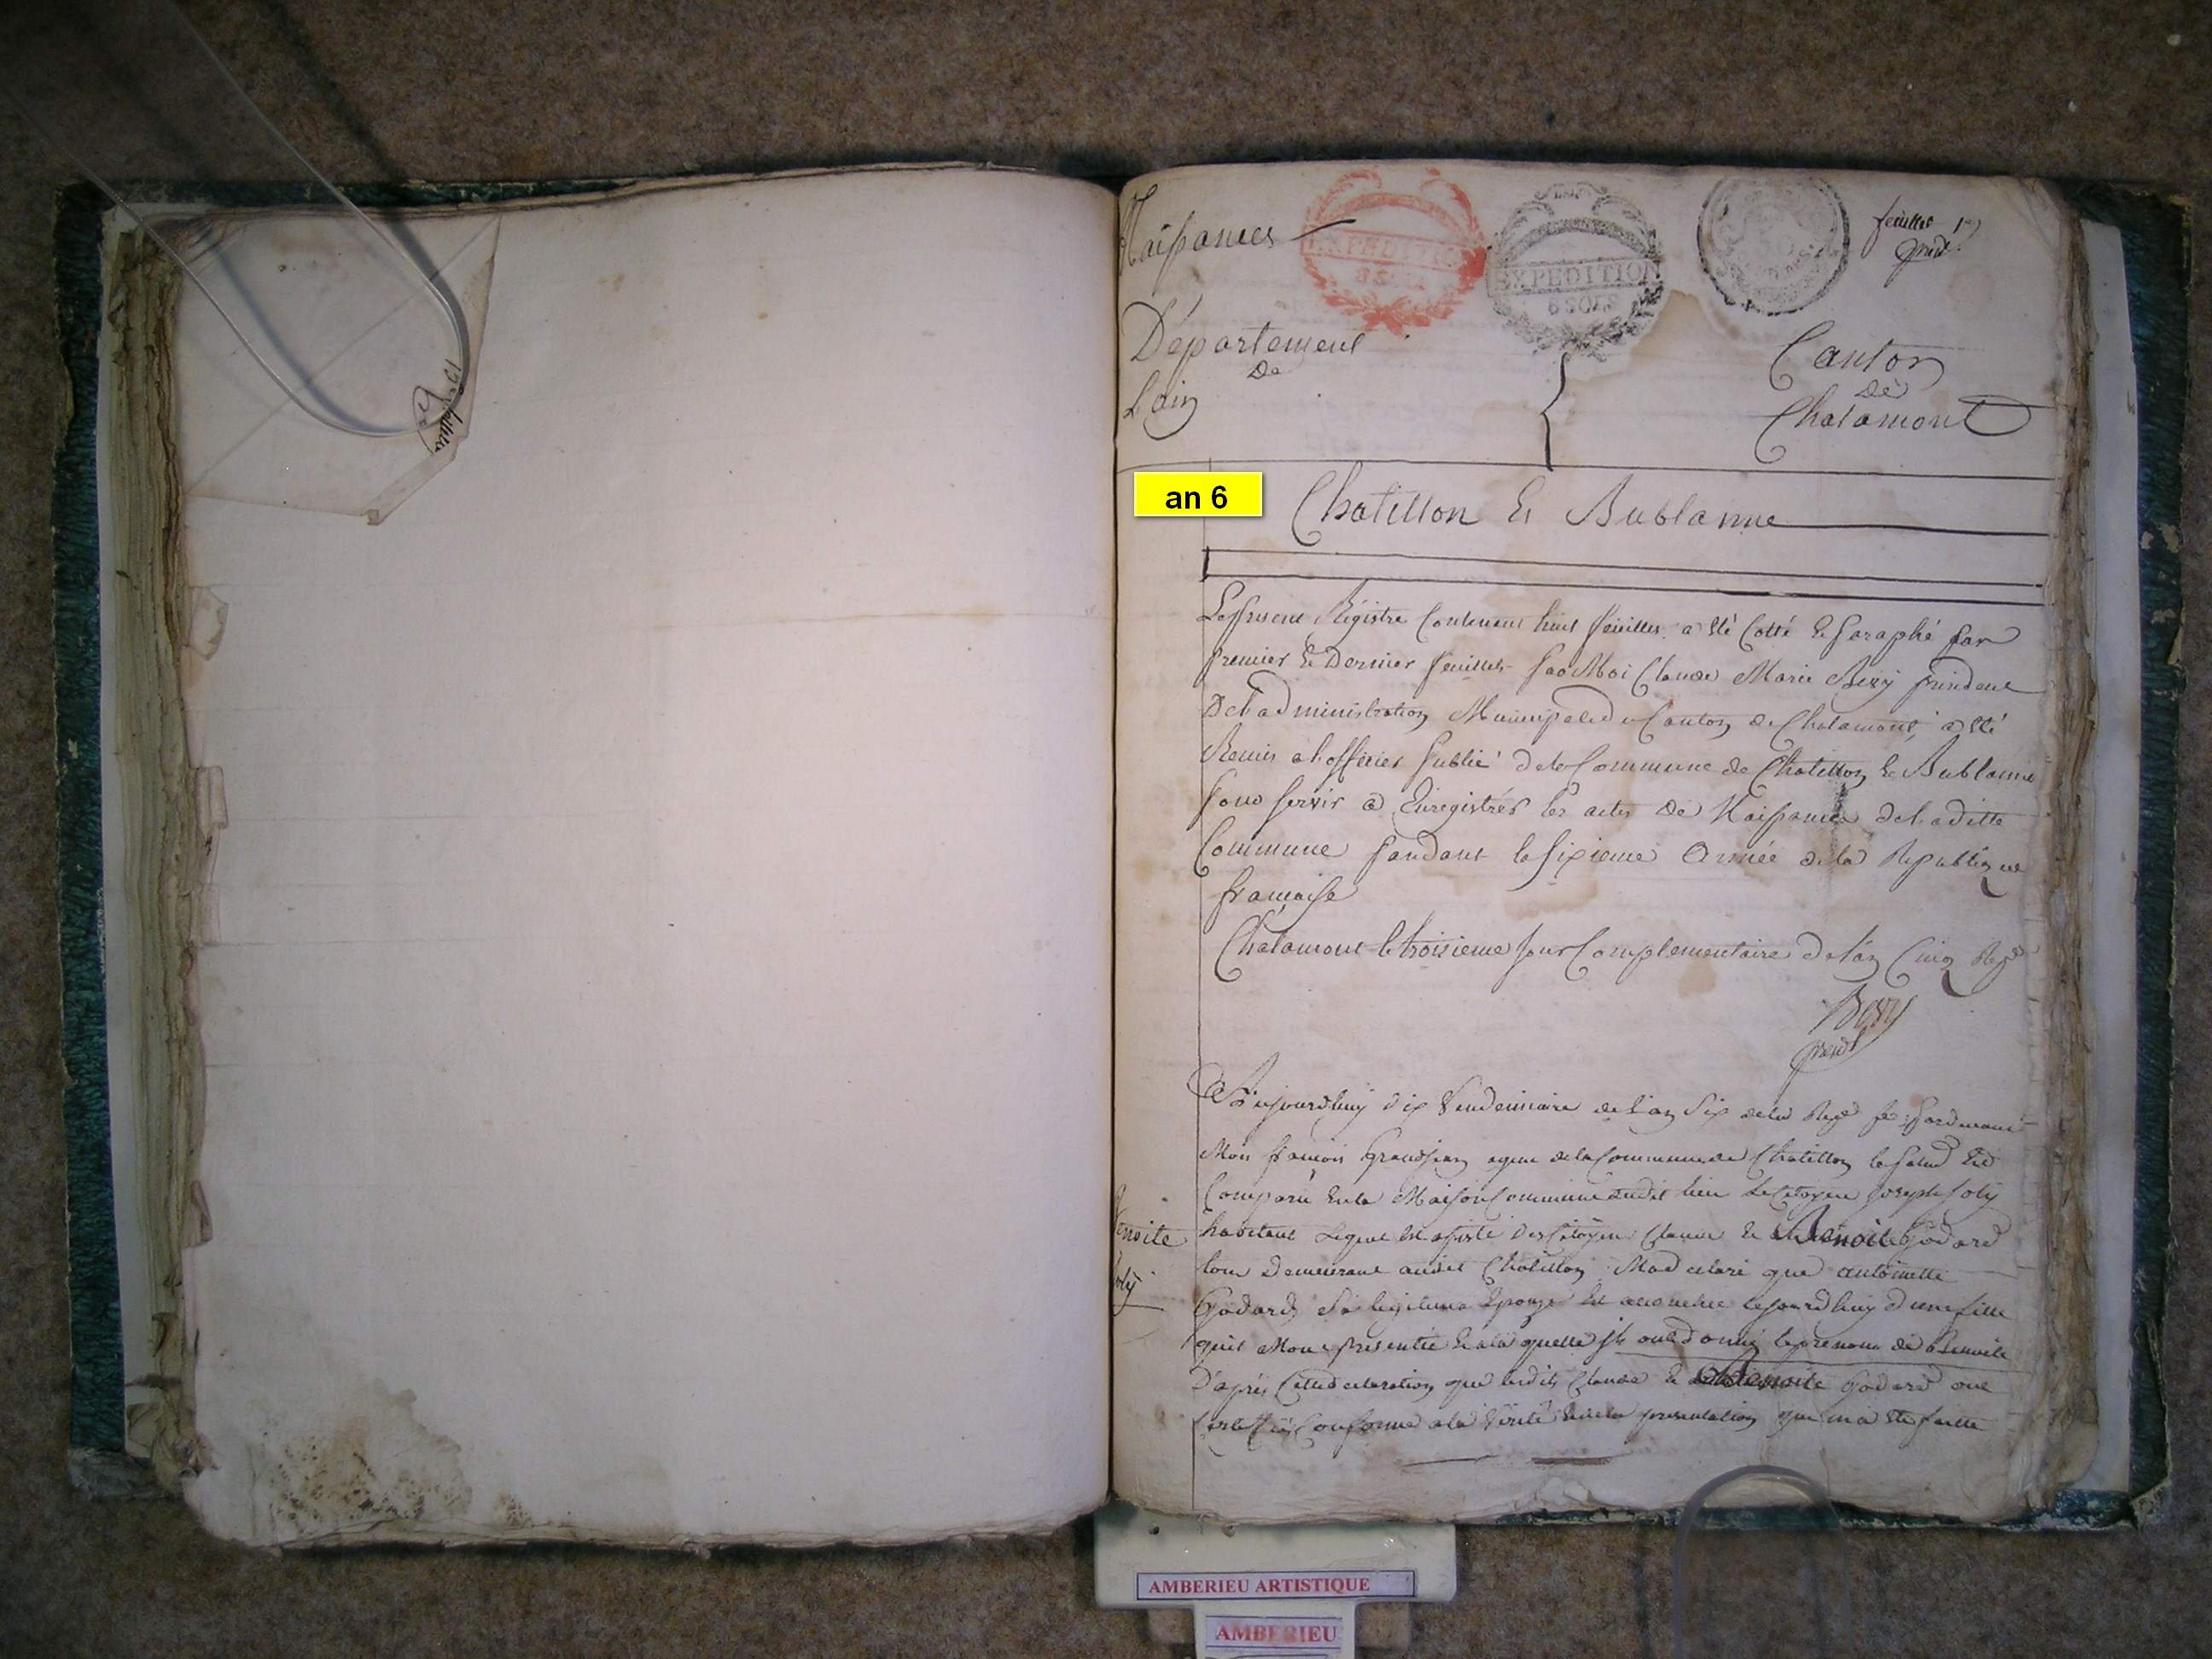 Naissances
EXPEDITION
EXPEDITION
6 SOLS
feuillet 1er
Présidt
Département
De
Lain
Canton
De
Chalamont
an 6
Chatillon Et Bublanne
Le présent Régistre Contenant huit feuilles a été Cotté et paraphé par
premier et Dernier feuillet par Moi Claude Marie Bery président
De l'administration Municipale du Canton de Chalamont, a été
Remis a l'officier public de la Commune de Chatillon et Bublanne
pour servir a Enregistrer les actes de Naissance de la ditte
Commune pandant la sixieme Année de la Republique
française
Chalamont le troisieme jour Complementaire de l'an Cinq Repe
Bery
présidt
Aujourdhuy dix Vendemiaire de l'an Six de la Repe fe pardevant
Moi françois Grandjean agent de la Commune de Chatillon la palud Est
Comparu En la Maison Commune dudit lieu Le Citoyen Joseph Joly
habitant Lequel assisté des Citoyens Claude Et Benoite Godard
tous Demeurant audit Chatillon M'a declaré que antoinette
Godard Sa legitime Epouze Est accouchée cejourdhuy d'une fille
quil M'on presentée Et a la quelle ils ont donné le prenom de Benoite
D'après Cette declaration que lesdits Claude Et Benoite Godard ont
Certiffiés Conforme a la Vérité Et la presentation qui m'a été faitte
Benoite
Joly
AMBERIEU ARTISTIQUE
AMBERIEU